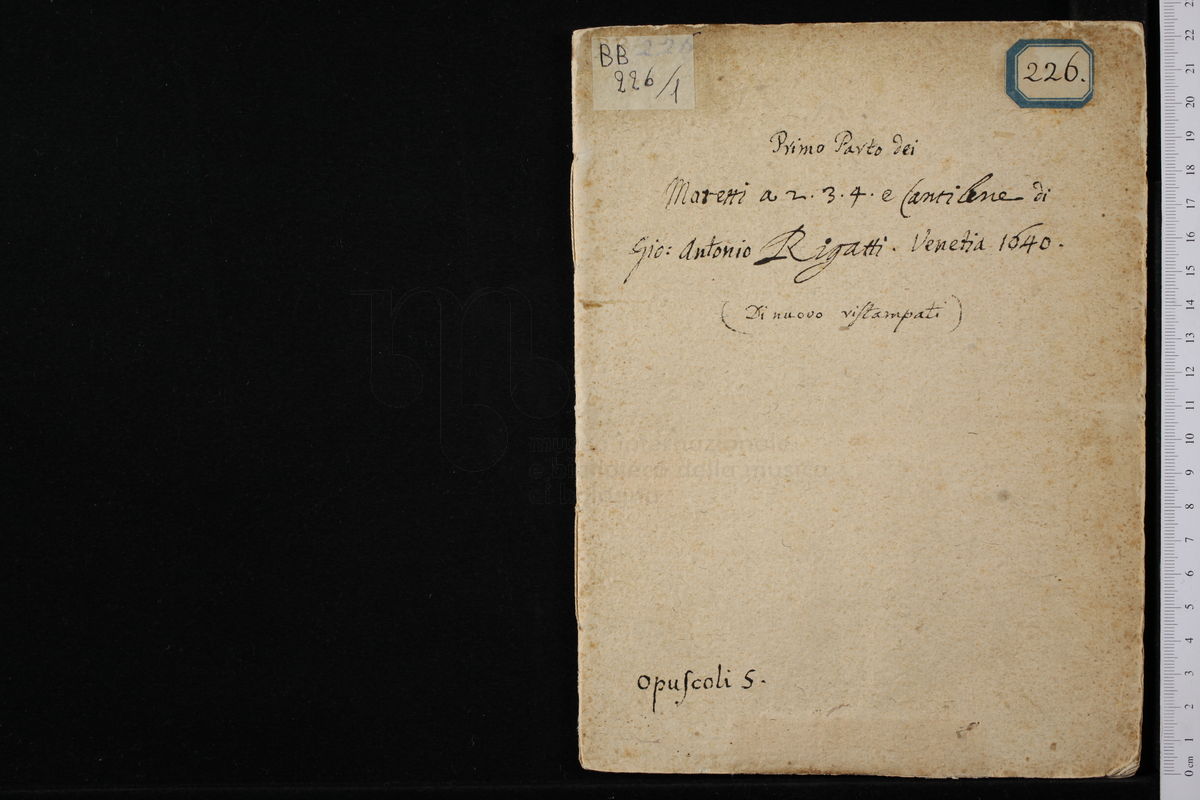 BB 226
BB
226/1
226.
Primo Parto dei
Motetti a 2. 3. 4. e Cantilene di
Gio: Antonio Rigatti. Venetia 1640.
(Di nuovo riſtampati)
museo internazionale
e biblioteca della musica
di bologna
opuſcoli 5.
22
21
20
19
18
17
16
15
14
13
12
11
10
9
8
7
6
5
4
3
2
1
0 cm